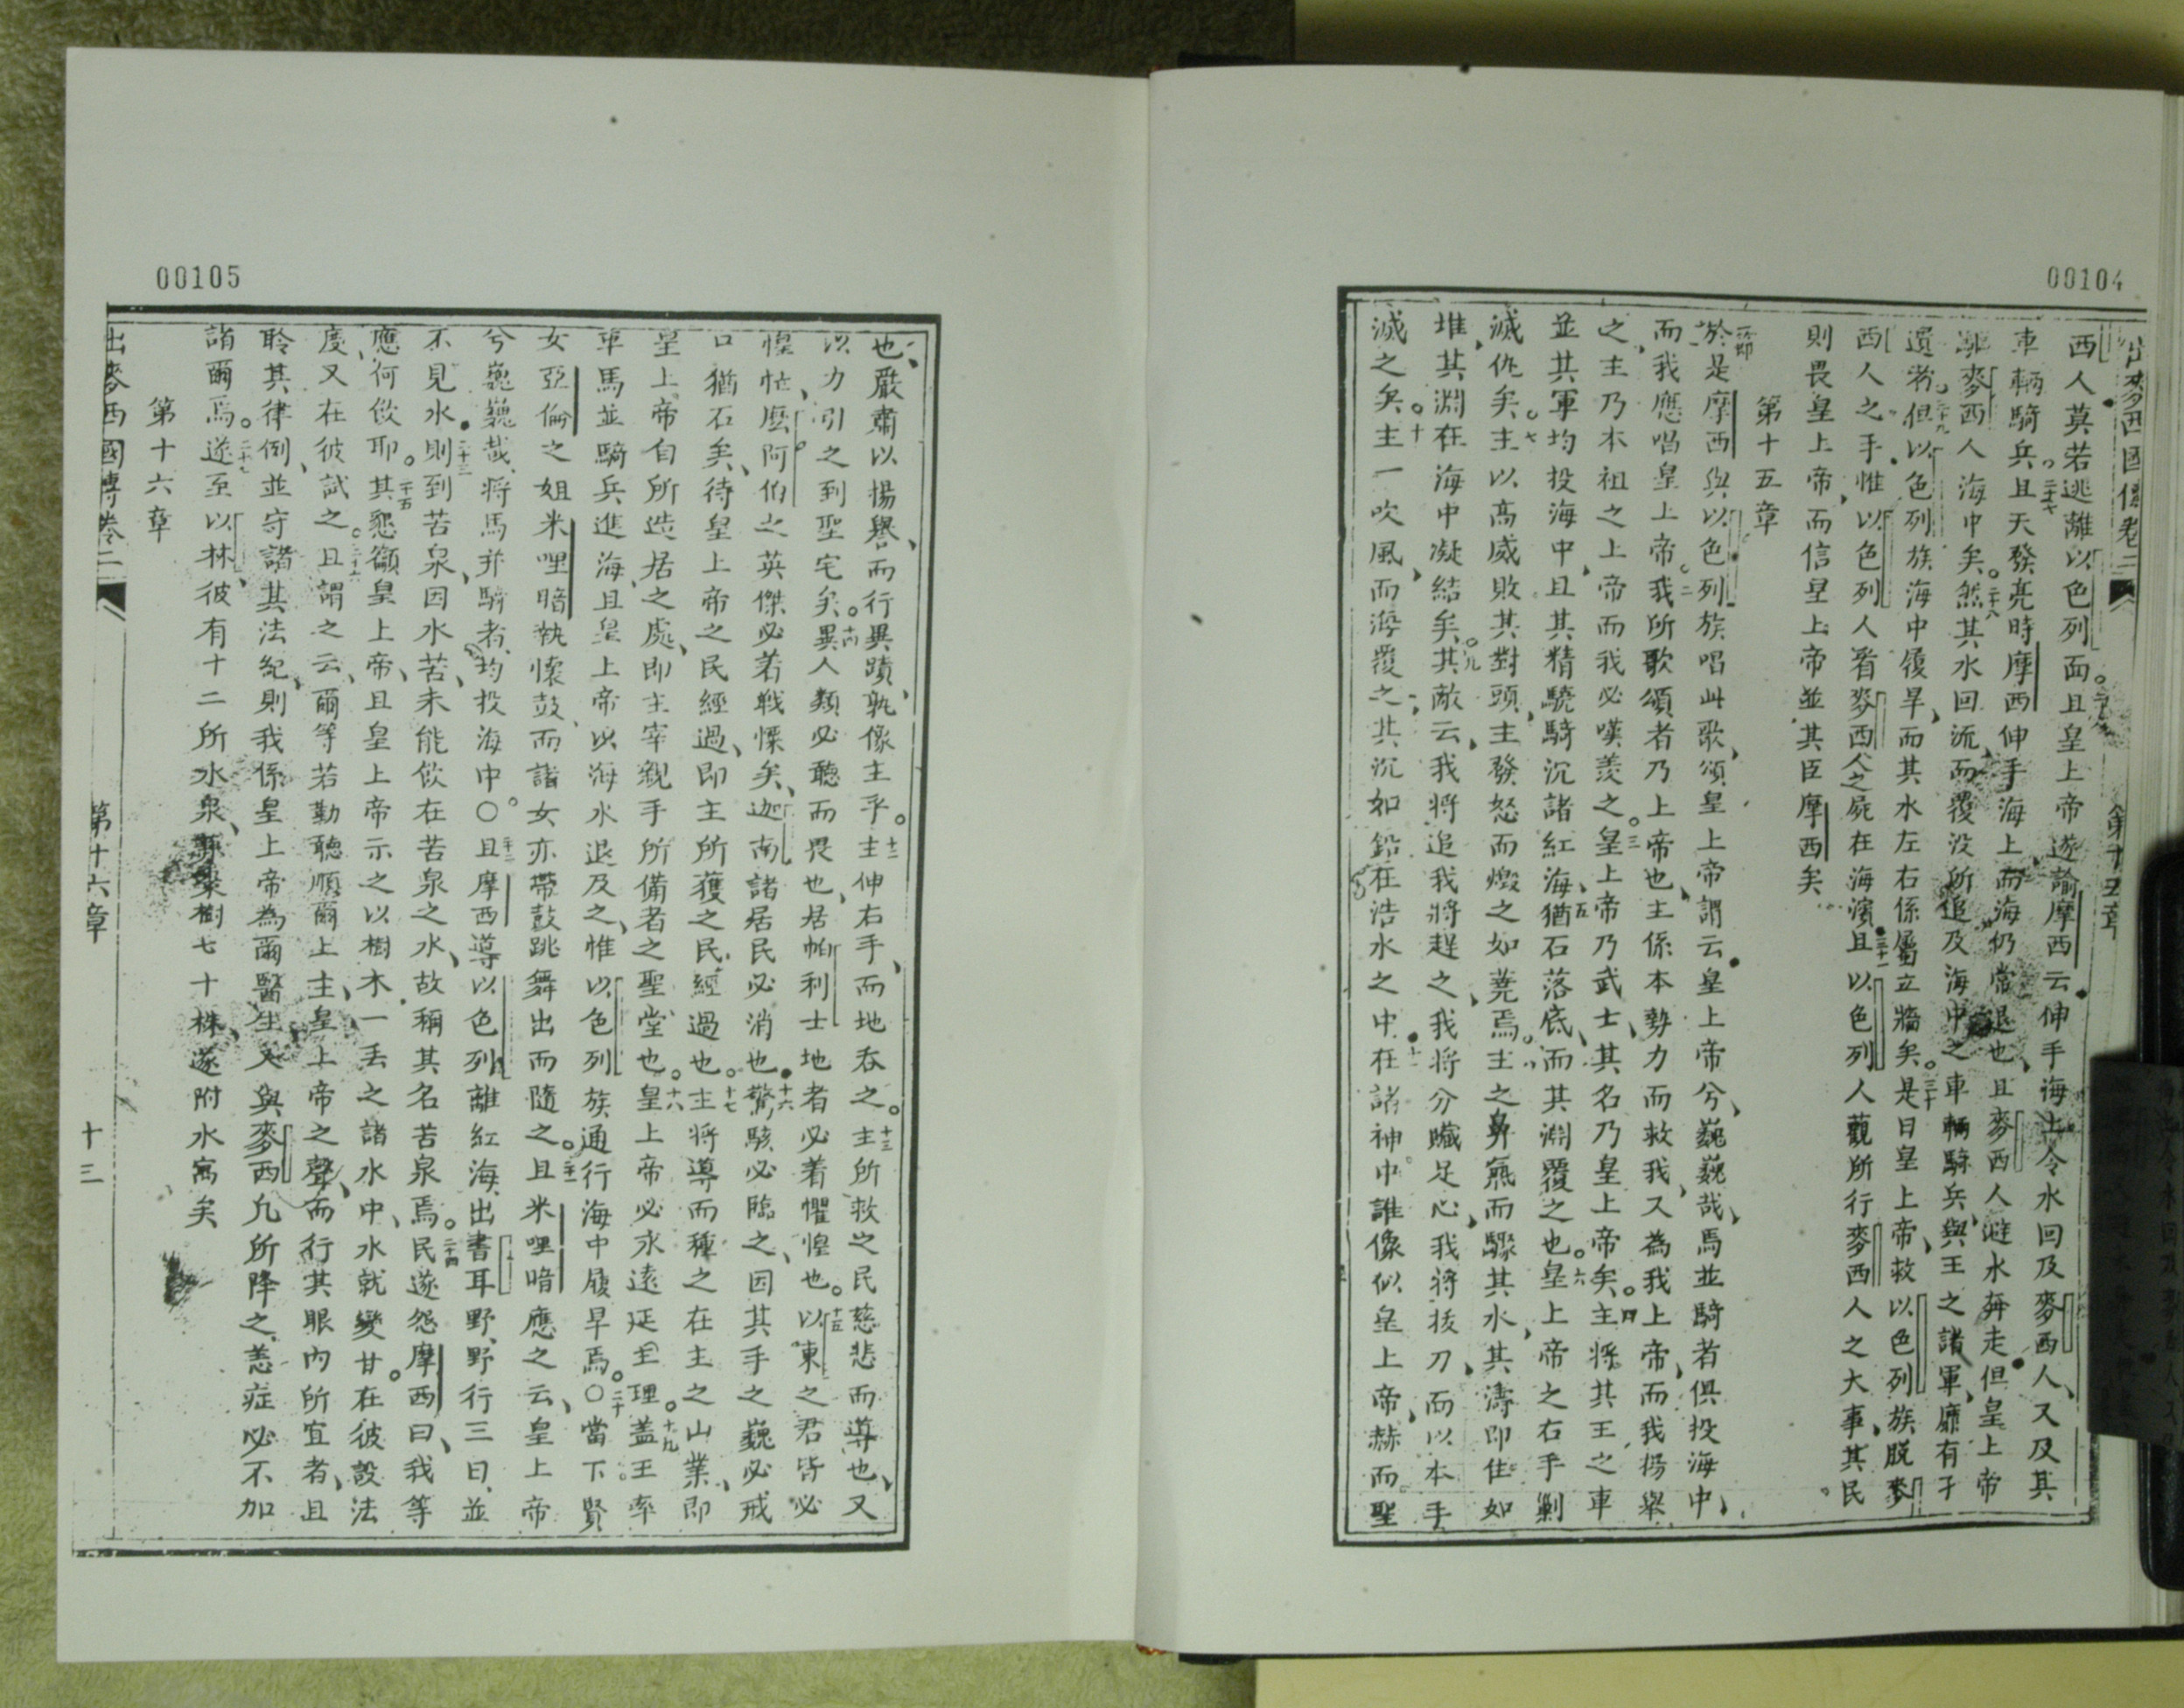 00104
出麥西國傳卷二 第十五章
西人莫若逃離以色列面且皇上帝遂諭摩西云伸手海上令水回及麥西人又及其
車輛騎兵二十七且天發亮時摩西伸手海上而海仍常退也且麥西人避水奔走但皇上帝
驅麥西人海中矣二十八然其水回流而覆沒所追及海中之車輛騎兵與王之諸軍靡有孑
遺者二十九但以色列族海中履旱而其水左右係屬立牆矣三十是日皇上帝救以色列族脫麥
西人之手惟以色列人看麥西人之屍在海濱三十一且以色列人觀所行麥西人之大事其民
則畏皇上帝而信皇上帝並其臣摩西矣
第十五章
一節於是摩西與以色列族唱此歌頌皇上帝謂云皇上帝兮巍巍哉馬並騎者俱投海中
而我應唱皇上帝二我所歌頌者乃上帝也主係本勢力而救我又為我上帝而我揚舉
之主乃本祖之上帝而我必嘆羨之三皇上帝乃武士其名乃皇上帝矣四主將其王之車
並其軍均投海中且其精驍騎沉諸紅海五猶石落底而其淵覆之也六皇上帝之右手剿
滅仇矣七主以高威敗其對頭主發怒而燬之如蕘焉八主之鼻燕而驟其水其濤即住如
堆其淵在海中凝結矣九其敵云我將追我將趕之我將分贓足心我將拔刀而以本手
滅之矣十主一吹風而海覆之其沉如鉛在浩水之中十一在諸神中誰像似皇上帝赫而聖
00105
也嚴肅以揚譽而行異蹟孰像主乎十二主伸右手而地吞之十三主所救之民慈悲而導也又
以力引之到聖宅矣十四異人類必聽而畏也居帕利士地者必着懼惶也十五以東之君皆必
惶怯麼阿伯之英傑必着戰慄矣迦南諸居民必消也十六驚駭必臨之因其手之巍必戒
口猶石矣待皇上帝之民經過即主所獲之民經過也十七主將導而種之在主之山業即
皇上帝自所造居之處即主宰親手所備者之聖堂也十八皇上帝必永遠延王理十九蓋王率
車馬並騎兵進海且皇上帝以海水退及之惟以色列族通行海中履旱焉〇二十當下賢
女亞倫之姐米哩暗執懷鼓而諸女亦帶鼓跳舞出而隨之二十一且米哩暗應之云皇上帝
兮巍巍哉將馬并騎者均投海中〇二十二且摩西導以色列離紅海出書耳野野行三日並
不見水二十三則到苦泉因水苦未能飲在苦泉之水故稱其名苦泉焉二十四民遂怨摩西曰我等
應何飲耶二十五其懇籲皇上帝且皇上帝示之以樹木一丟之諸水中水就變甘在彼設法
度又在彼試之二十六且謂之云爾等若勤聽順爾上主皇上帝之聲而行其眼內所宜者且
聆其律例並守諸其法紀則我係皇上帝為爾醫生 與麥西凡所降之恙症必不加
諸爾焉二十七遂至以林彼有十二所水泉 樹七十株遂附水寓矣
第十六章
出麥西國傳卷二 第十六章 十三